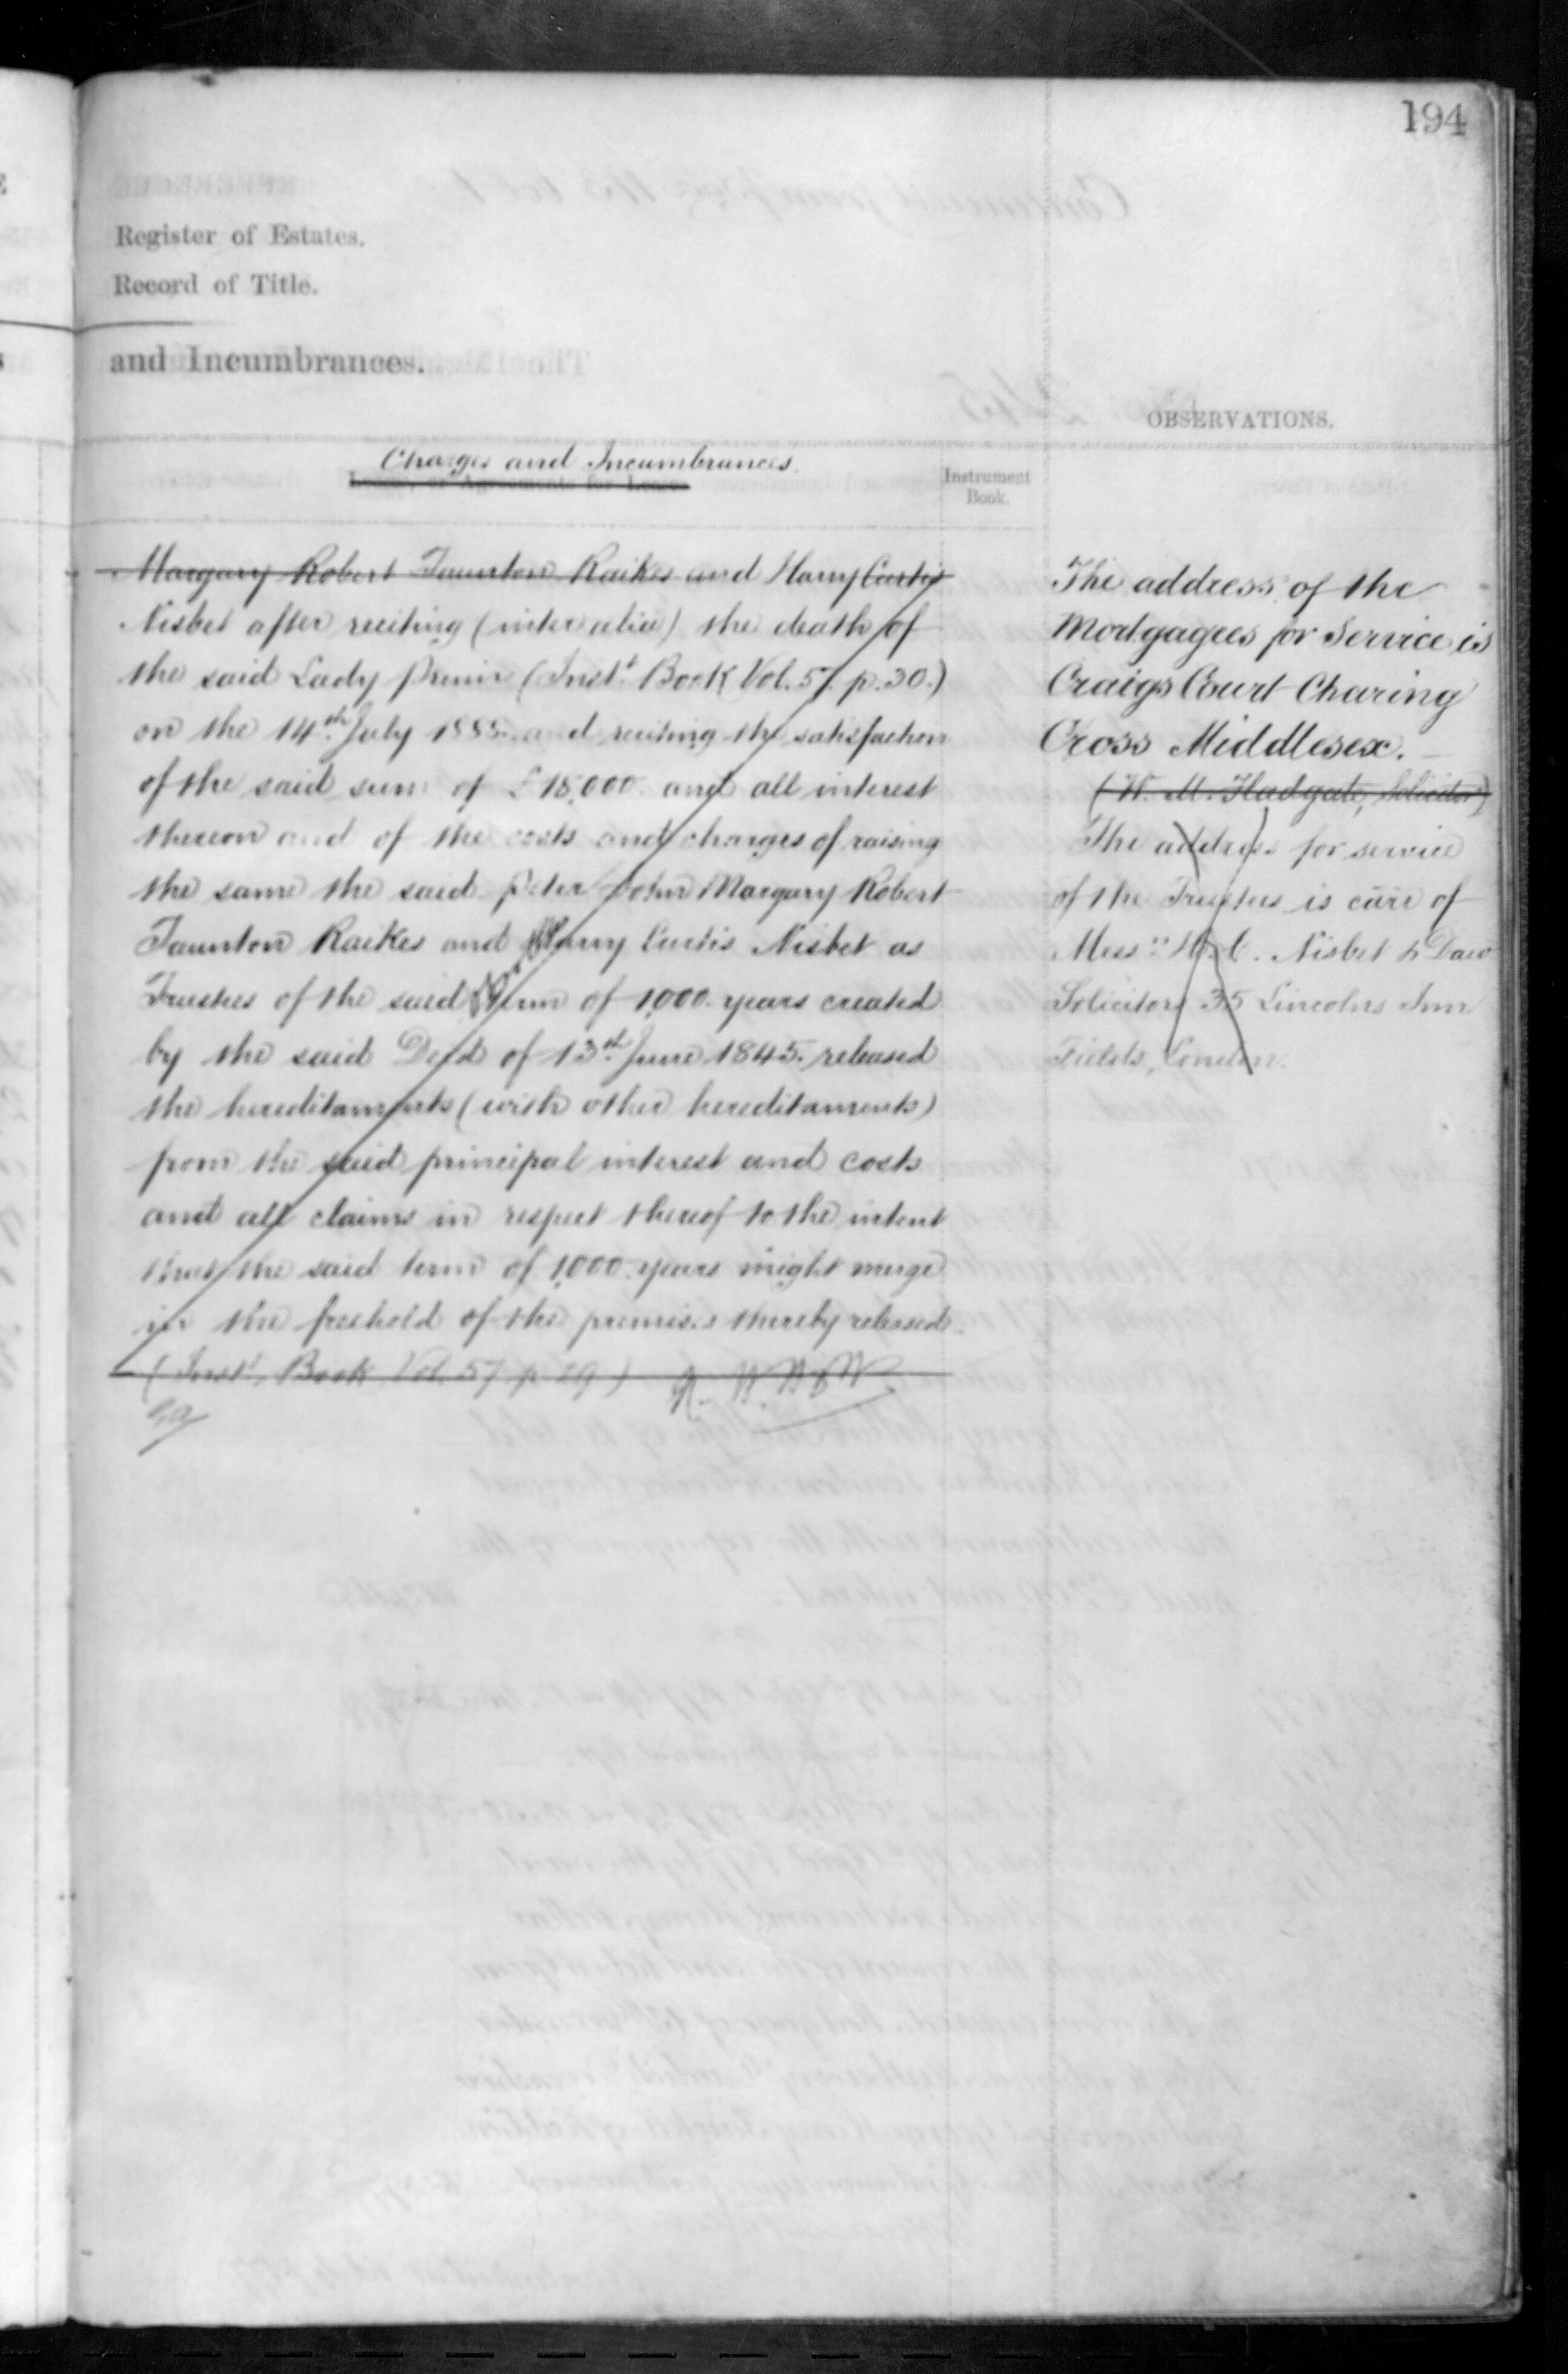 194
Register of Estates.
Record of Title.
and Incumbrances.
OBSERVATIONS.
Charges and Incumbrances.
Leases, or Agreements for Lease
Instrument
Book.
Margary Robert Taunton Raikes and Harry Curtis
Nisbet after reciting (inter alia) the death of
the said Lady Prinn (Inst.t Book Vol. 57. p. 30.)
on the 14th July 1885. and reciting the satisfaction
of the said sum of £15,000. and all interest
thereon and of the costs and charges of raising
the same the said Peter John Margary Robert
Taunton Raikes and Harry Curtis Nisbet as
Trustees of the said Term of 1,000. years created
by the said Deed of 13th June 1845. released
the hereditaments (with other hereditaments)
from the said principal interest and costs
and all claims in respect thereof to the intent
that the said term of 1,000. years might merge
in the freehold of the premises thereby released.
(Inst.t Book Vol. 57 p. 29)
The address of the
Mortgagees for Service is
Craigs Court Charing
Cross Middlesex.
(W. M. Hadgate, Solicitor)
The address for service
of the Trustees is care of
Mess.rs H. C. Nisbet & Daw
Solicitors 35 Lincolns Inn
Fields, London.